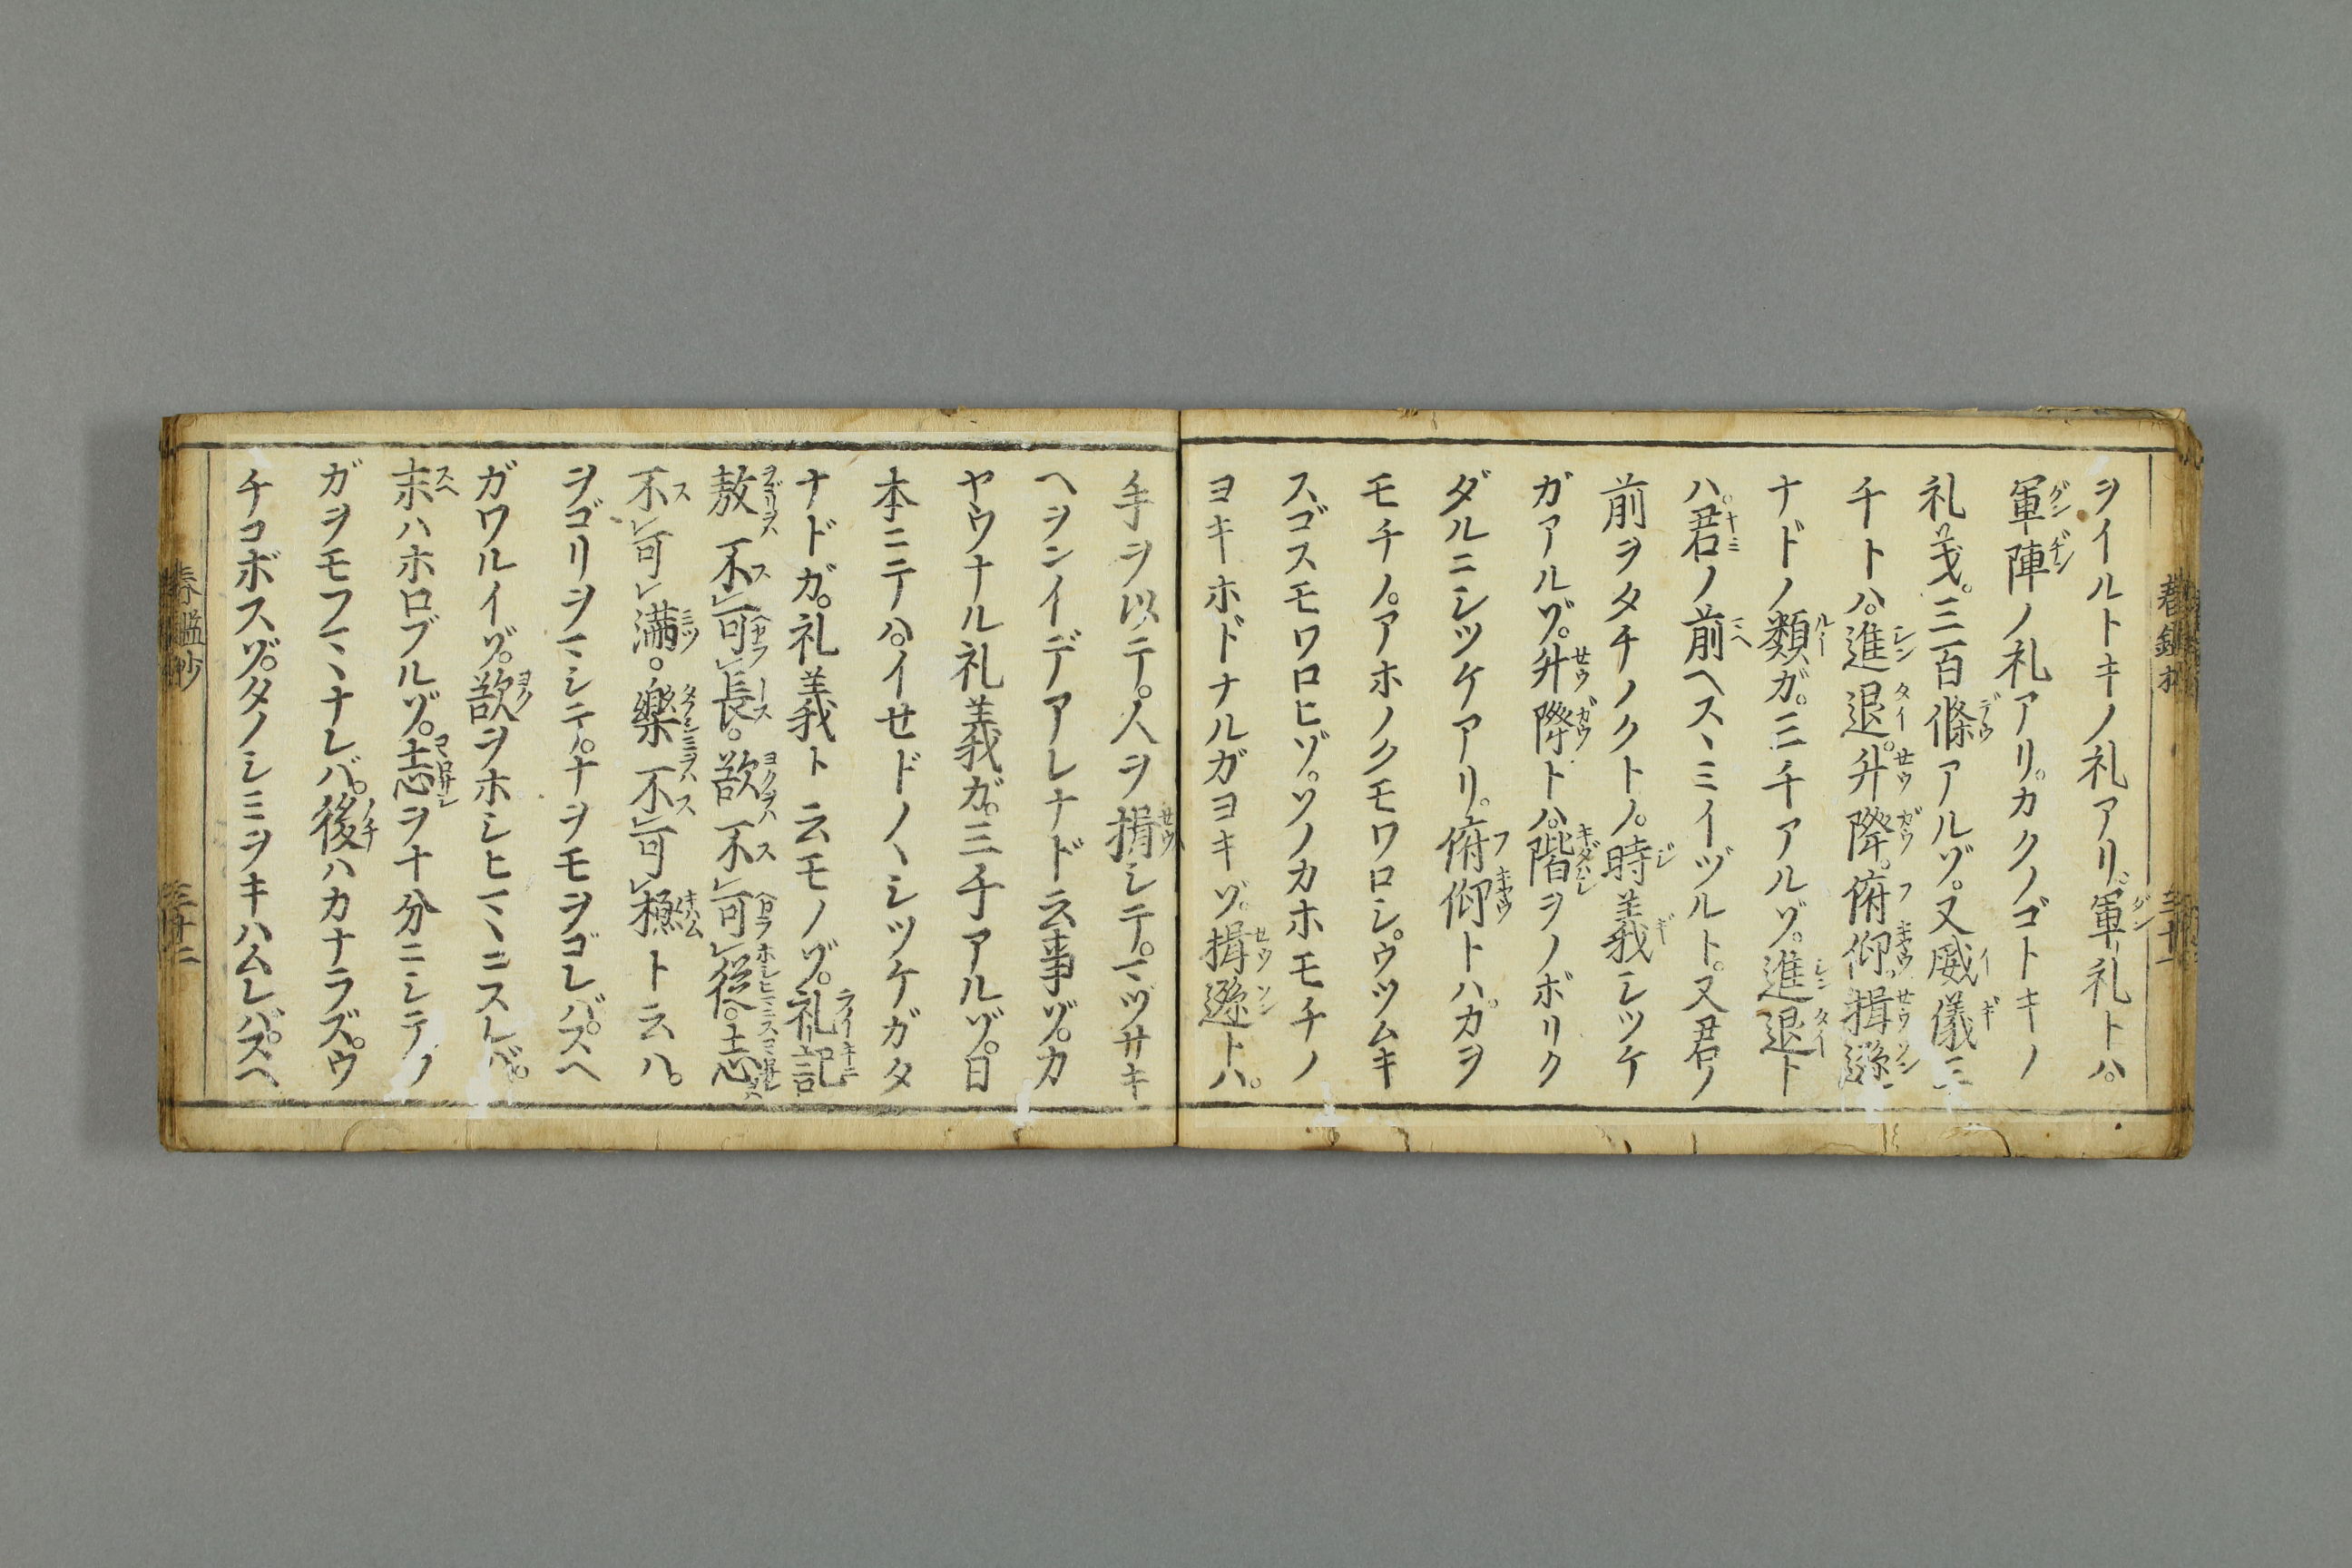 ヲイルトキノ礼アリ。軍礼トハ。
軍陣ノ礼アリ。カクノゴトキノ
礼義。三百條アルゾ。又威儀三
千トハ。進退。升降。俯仰。揖遜
ナドノ類ガ。三千アルゾ。進退ト
ハ。君ノ前ヘスヽミイヅルト。又君ノ
前ヲタチノクトノ。時義シツケ
ガアルゾ。升降トハ。階ヲノボリク
ダルニシツケアリ。俯仰トハ。カヲ
モチノ。アホノクモワロシ。ウツムキ
スゴスモワロヒゾ。ソノカホモチノ
ヨキホドナルガヨキゾ。揖遜トハ。
手ヲ以テ。人ヲ揖シテ。マヅサキ
ヘヲンイデアレナド云事ゾ。カ
ヤウナル礼義ガ。三千アルゾ。日
本ニテハ。イセドノヽシツケガタ
ナドガ。礼義ト云モノゾ。礼記
敖不可長。欲不可従。志
不可満。樂不可極ト云ハ。
ヲゴリヲマシテ。ナヲモヲゴレバ。スヘ
ガワルイゾ。欲ヲホシヒマヽニスレバ。
末ハホロブルゾ。志ヲ十分ニシテノ
ガヲモフマヽナレバ。後ハカナラズ。ウ
チコボスゾ。タノシミヲキハムレバ。スヘ
春鑑抄
三十二